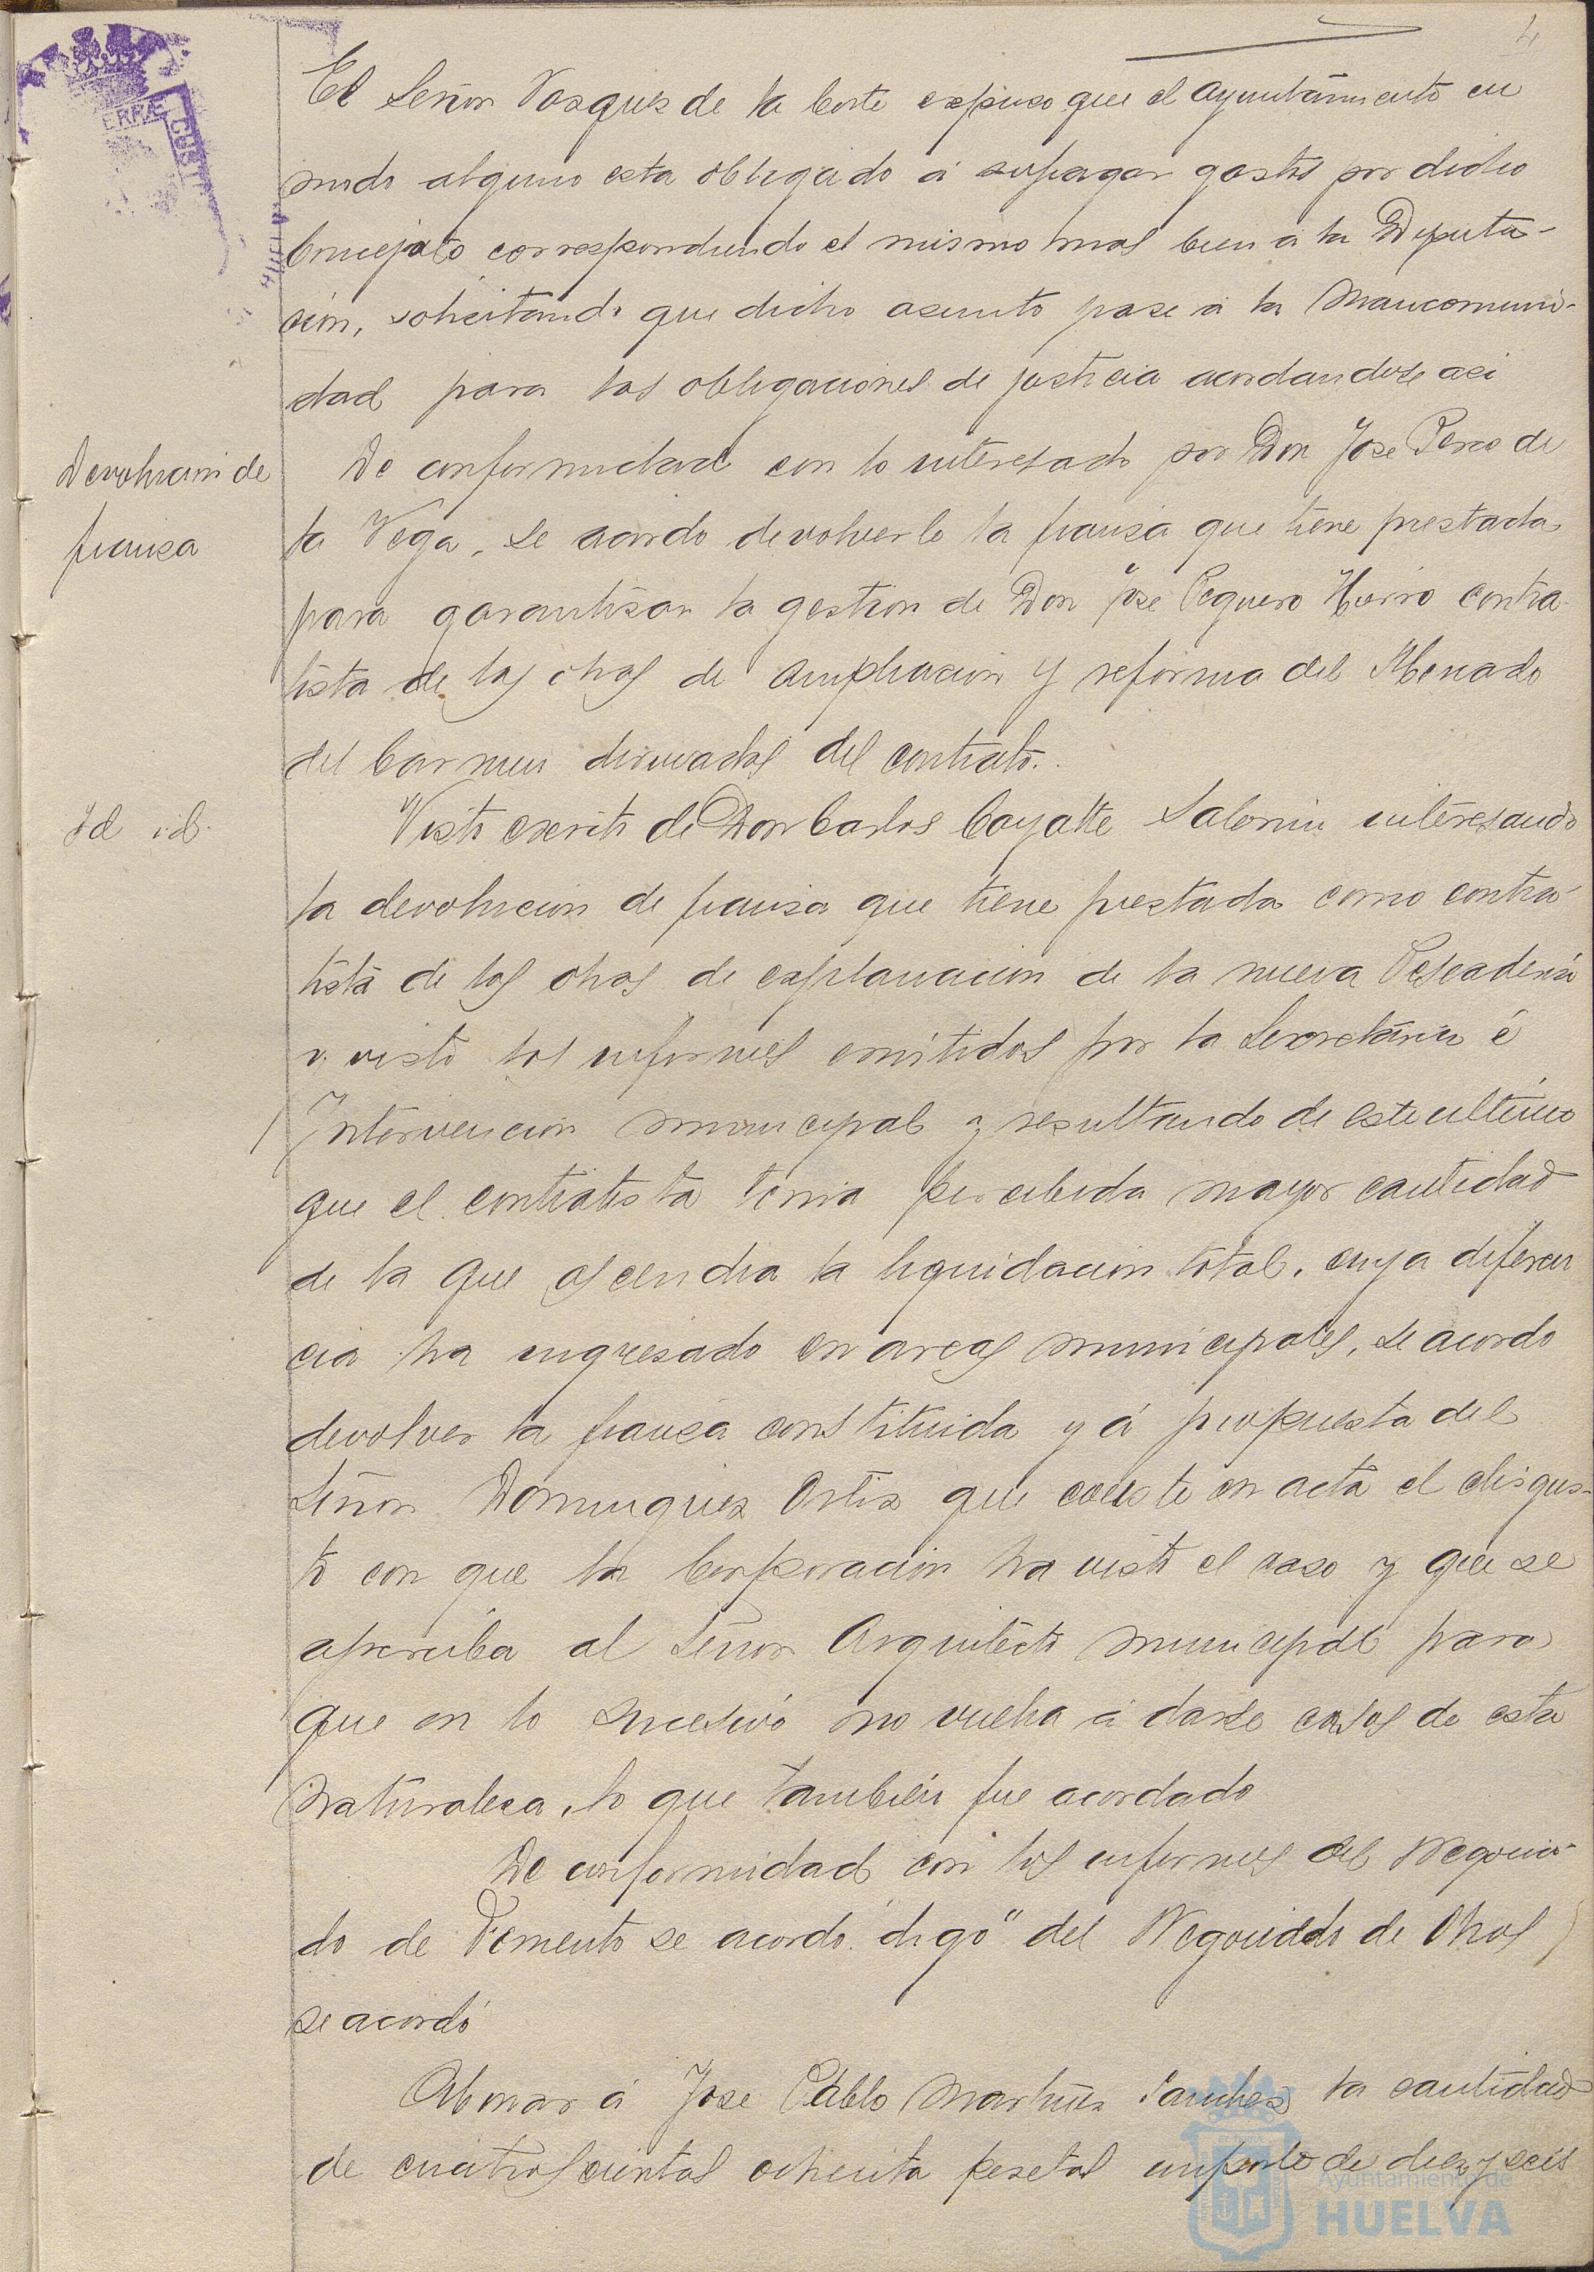 4
El Señor Vazquez de la Corte expuso que el Ayuntamiento en
modo alguno esta obligado á sufragar gastos por dicho
Concejato correspondiendo el mismo mas bien á la Diputa-
ción, solicitando que dicho asunto pase á la Mancomuni-
dad para las obligaciones de justicia acordandose asi
Devolucion de
fianza
De conformidad con lo interesado por Don Jose Perez de
la Vega, se acordo devolverle la fianza que tiene prestada
para garantizar la gestion de Don Jose Peguero Hierro contra-
tista de las obras de ampliacion y reforma del Mercado
del Carmen derivadas del contrato.
Id id.
Visto escrito de Don Carlos Coyatte Salomin interesando
la devolucion de fianza que tiene prestada como contra-
tista de las obras de explanacion de la nueva Pescaderia
y visto los informes emitidos por la Secretaria é
Intervencion municipal y resultando de este ultimo
que el contratista tenia percibida mayor cantidad
de la que ascendia la liquidacion total, cuya diferen
cia ha ingresado en arcas municipales, se acordo
devolver la fianza constituida y á propuesta del
Señor Dominguez Ortiz que conste en acta el disgus-
to con que la Corporacion ha visto el caso y que se
aperciba al Señor Arquitecto municipal para
que en lo sucesivo no vuelva á darse casos de esta
naturaleza, lo que también fue acordado
De conformidad con los informes del Negocia-
do de Fomento se acordo "digo" del Negociado de Obras
se acordó
Abonar á Jose Pablo Martinez Sanchez la cantidad
de cuatroscientas ochenta pesetas importe de diez y seis
Ayuntamiento de
HUELVA